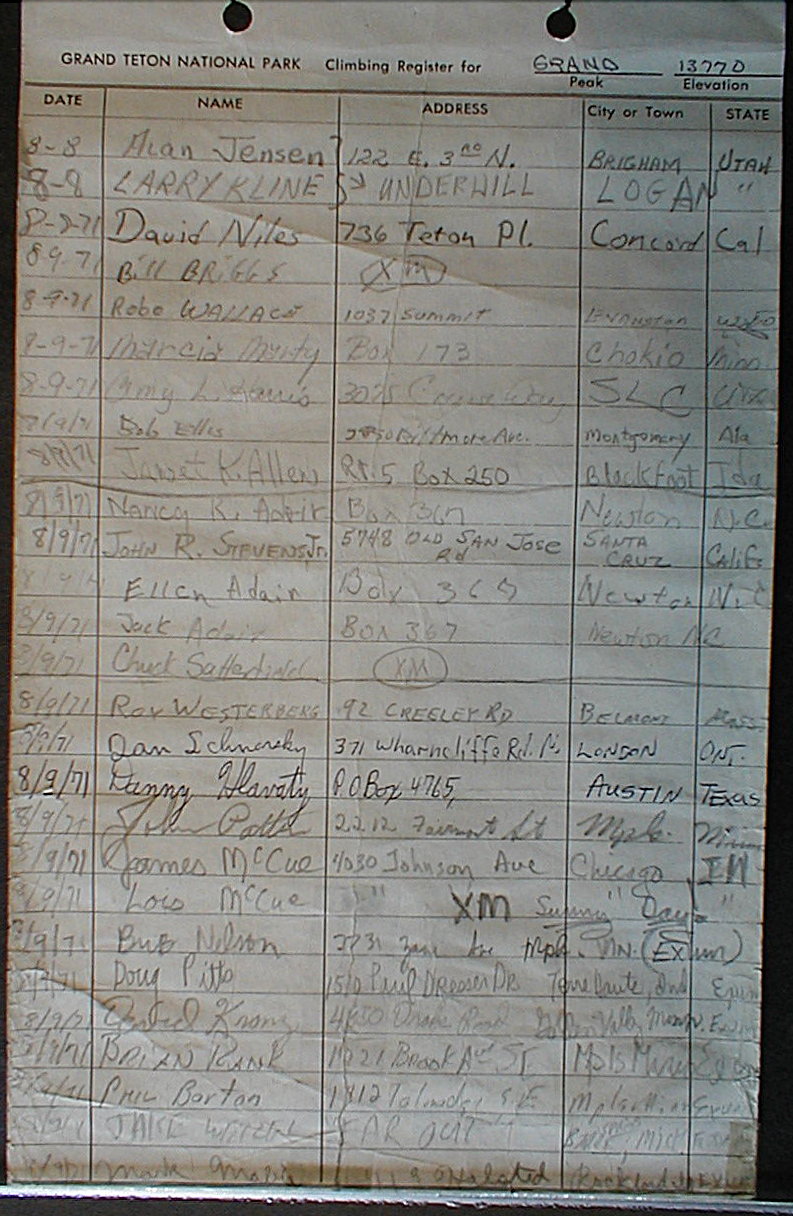 GRAND TETON NATIONAL PARK Climbing Register for GRAND 13770
Peak Elevation
DATE NAME ADDRESS City or Town STATE
8-8 Alan Jensen 122 E. 3rd N. BRIGHAM UTAH
8-8 LARRY KLINE UNDERHILL LOGAN "
David Niles 736 Teton Pl. Concord Cal
8-9-71 Bill BRIGGS XM
8-9-71 Robo WALLACE 1037 Summit EVANSTON
8-9-71 Marcia Marty Box 173 Chokio Minn
8-9-71 Amy L. Harris SLC
Bob Ellis Biltmore Ave. Montgomery Ala
8/9/71 Janet K. Allen Rt. 5 Box 250 Blackfoot Ida
8/9/71 Nancy K. Adair Box 367 Newton N.C.
8/9/71 JOHN R. STEVENS, Jr. 5748 OLD SAN JOSE Rd SANTA CRUZ CALIF
Ellen Adair Box 367 Newton N.C
8/9/71 Jack Adair Box 367 Newton NC
8/9/71 Chuck Satterfield XM
8/9/71 Roy WESTERBERG 92 CREELEY RD BELMONT Mass.
8/9/71 Dan 371 Wharncliffe Rd. N. LONDON ONT.
8/9/71 Danny Hlavaty P.O Box 4765, AUSTIN TEXAS
8/9/71 John 2212 Fairmont St Mpls. Minn
8/9/71 James McCue 4030 Johnson Ave Chicago, Ill
8/9/71 Lois McCue " XM Sunny Days " "
8/9/71 Bub Nelson Ave Mpls. MN. (Exum)
8/9/71 Doug Pitts 1510 Paul Dresser Dr Terre Haute, Ind Exum
8/9/71 Drake Road Golden Valley Minn.
8/9/71 BRIAN RANK Brook Ave SE Mpls Minn
Phil Barton S.E. Mpls
JAKE FAR OUT Mich
Mark Rockford